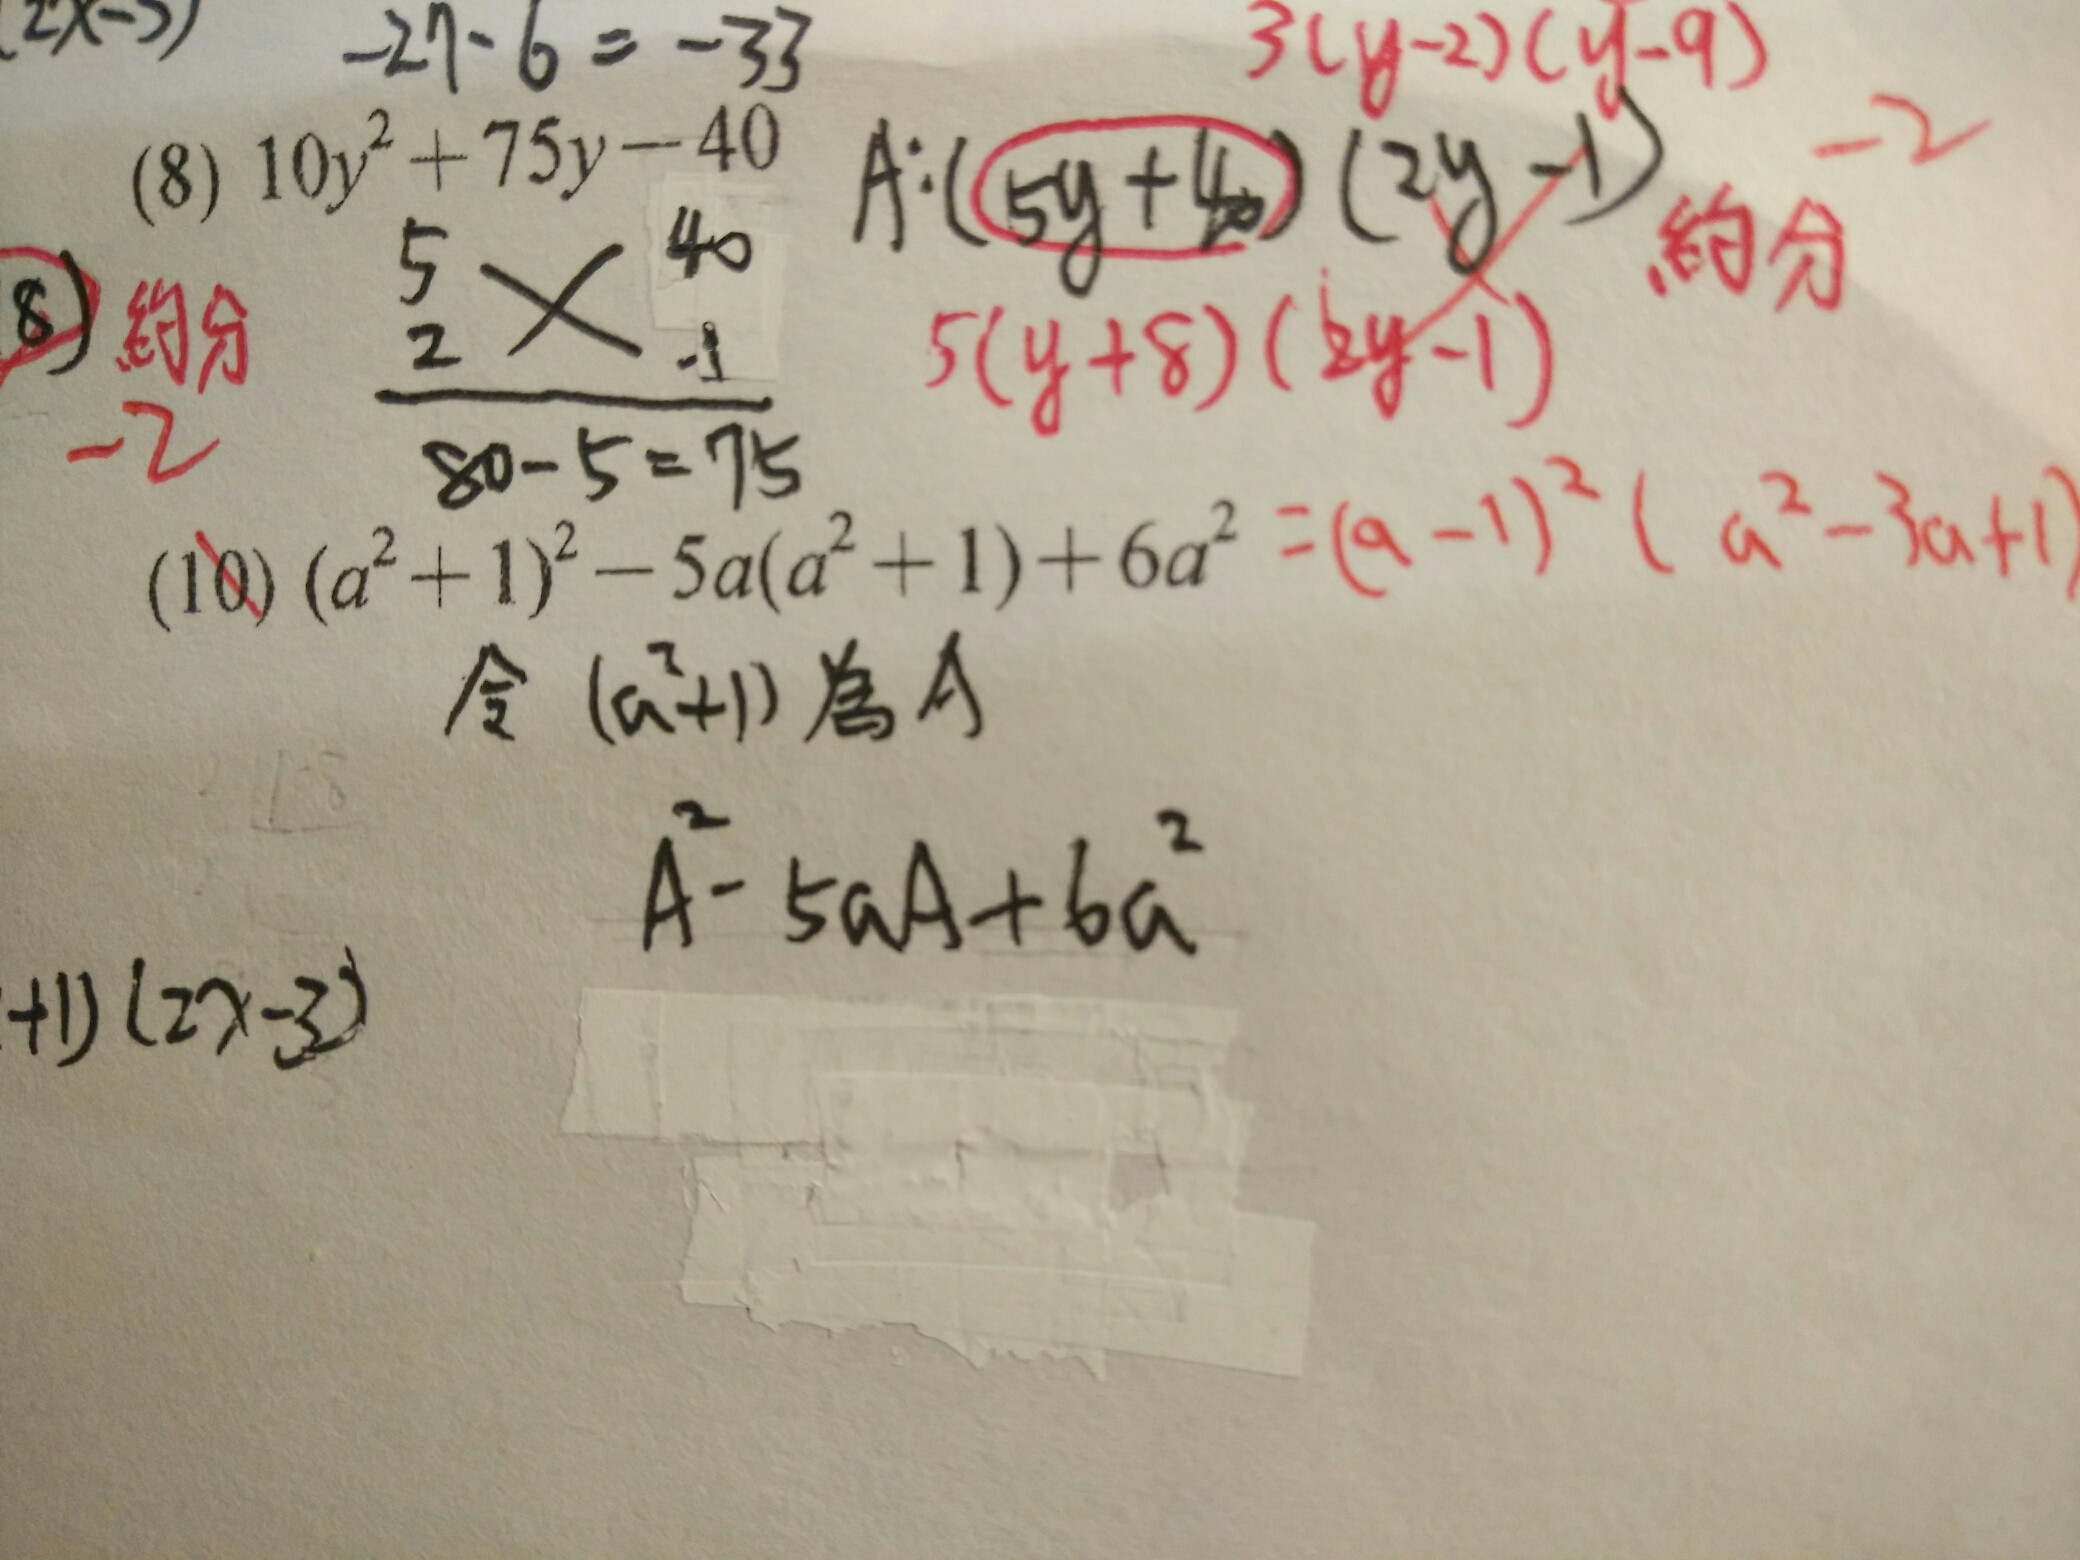 2x-3)
-27-6=-33
3(y-2)(y-9)
(8) 10y²+75y-40
A:(5y+40)(2y-1)
-2
約分
5 40
2 -1
8) 約分
5(y+8)(2y-1)
-2
80-5=75
(10) (a²+1)²-5a(a²+1)+6a² =(a-1)²(a²-3a+1)
令 (a²+1) 為 A
A²-5aA+6a²
+1)(2x-3)